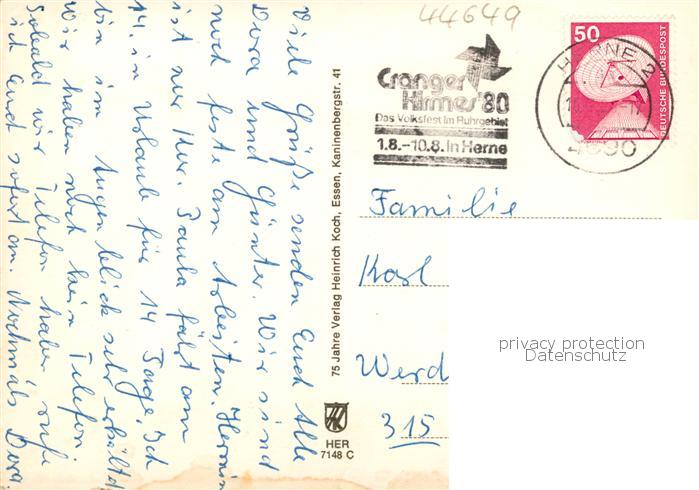 44649
Cranger
Kirmes '80
Das Volksfest im Ruhrgebiet
1.8.–10.8. in Herne
HERNE 2
4690
50
DEUTSCHE BUNDESPOST
Viele Grüße senden Euch Alle
Dora und Günter. Wir sind
noch feste am Arbeiten.
ist zur Kur. Paula fährt am
14. in Urlaub für 14 Tage. Ich
bin im Augenblick sehr erkältet
Wir haben noch kein Telefon.
Sobald wir Telefon haben rufe
ich Euch sofort an. Nochmals Dora
75 Jahre Verlag Heinrich Koch, Essen, Kaninenbergstr. 41
HER
7148 C
Familie
Karl
Werd
315
privacy protection
Datenschutz